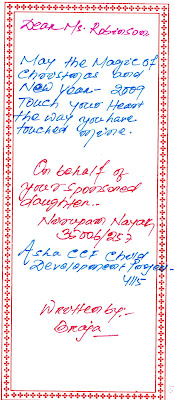 Dear Ms. Robinson
May the Magic of
Christmas and
New Year - 2009
Touch your Heart
the way you have
touched mine.
On behalf of
your sponsored
daughter..
Nayak
Asha CCF Child
Development Project
4115
Written by:-